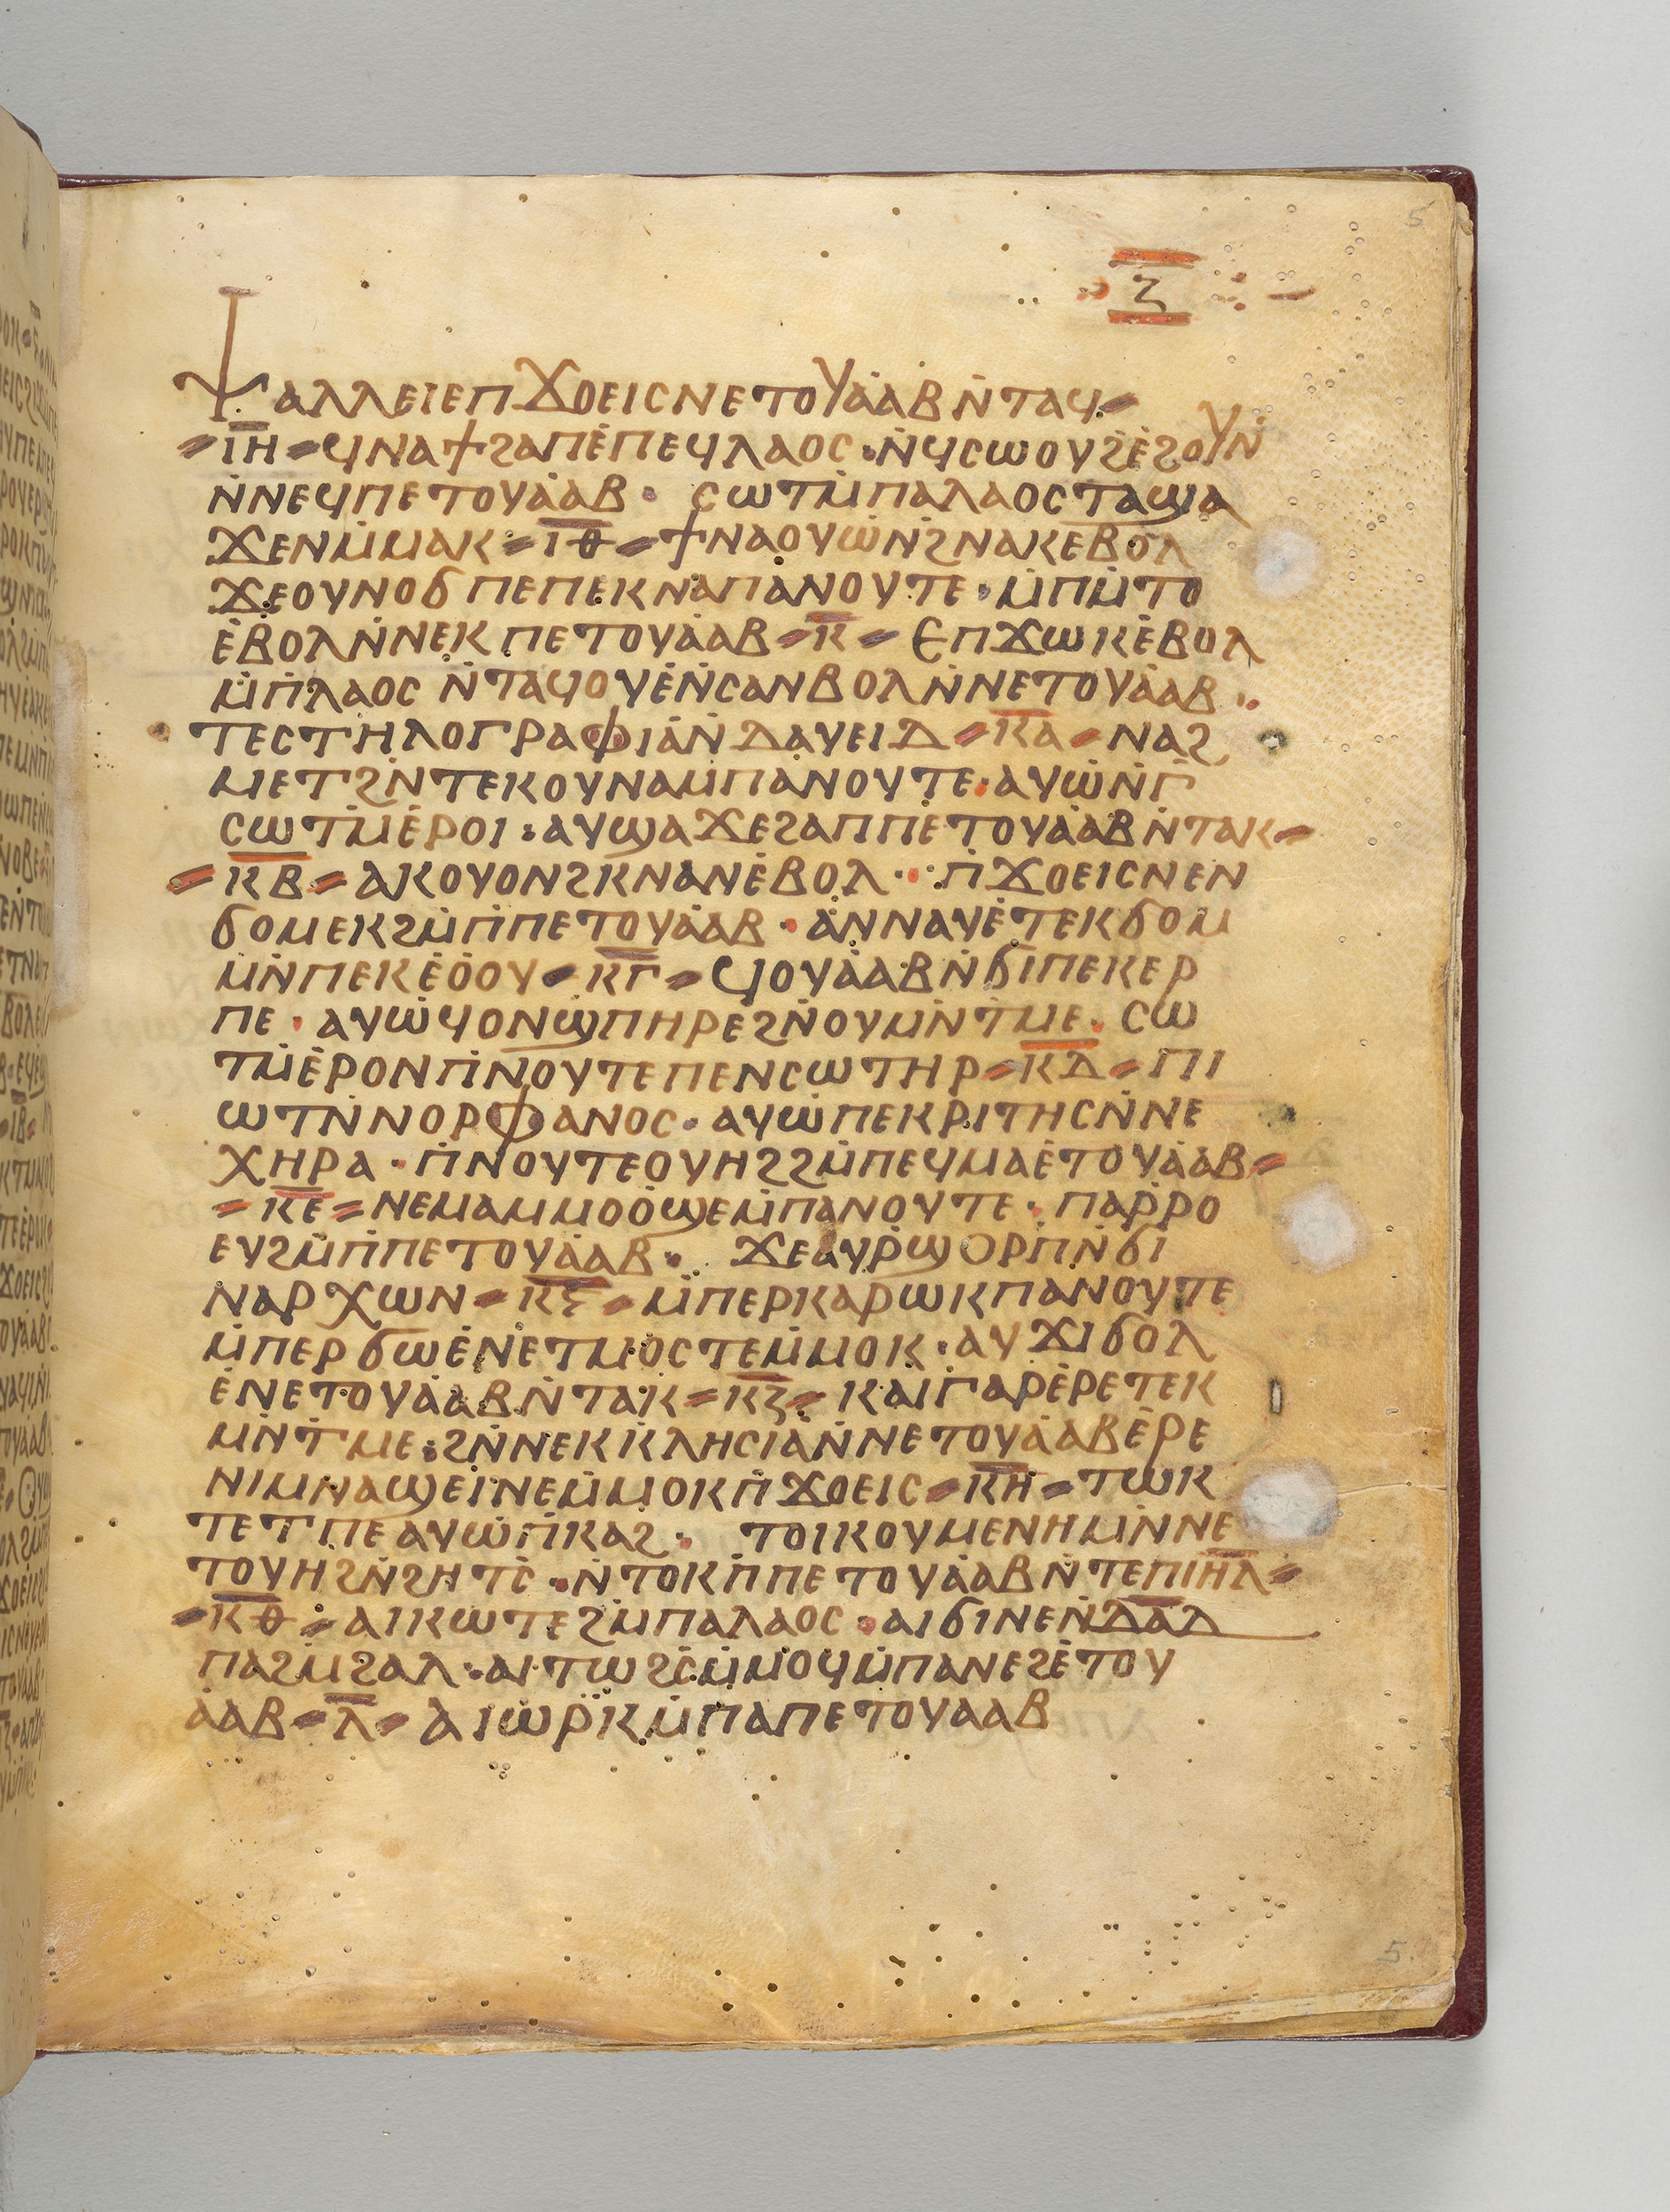 5
ⲍ̅
ⲯⲁⲗⲗⲉⲓⲉⲡϫⲟⲉⲓⲥⲛⲉⲧⲟⲩⲁ̇ⲁⲃⲛ̇ⲧⲁϥ⸗
⸗ⲓ̅ⲏ̅⸗ϥⲛⲁϯϩⲁⲡⲉ̇ⲡⲉϥⲗⲁⲟⲥ·ⲛ̇ϥⲥⲱⲟⲩϩⲉ̇ϩⲟⲩⲛ̇
ⲛ̇ⲛⲉϥⲡⲉⲧⲟⲩⲁ̇ⲁⲃ· ⲥⲱⲧⲙ̇ⲡⲁⲗⲁⲟⲥⲧⲁϣⲁ
ϫⲉⲛⲙ̇ⲙⲁⲕ⸗ⲓ̅ⲑ̅⸗ϯⲛⲁⲟⲩⲱⲛ̇ϩⲛⲁⲕⲉⲃⲟⲗ
ϫⲉⲟⲩⲛⲟϭⲡⲉⲡⲉⲕⲛⲁⲡⲁⲛⲟⲩⲧⲉ·ⲙ̇ⲡⲙ̇ⲧⲟ
ⲉ̇ⲃⲟⲗⲛ̇ⲛⲉⲕⲡⲉⲧⲟⲩⲁ̇ⲁⲃ⸗ⲕ̅⸗ⲉⲡϫⲱⲕⲉ̇ⲃⲟⲗ
ⲙ̇ⲡ̇ⲗⲁⲟⲥⲛ̇ⲧⲁϥⲟⲩⲉ̇ⲛ̇ⲥⲁⲛⲃⲟⲗⲛ̇ⲛⲉⲧⲟⲩⲁ̇ⲁⲃ·
ⲧⲉⲥⲧⲏⲗⲟⲅⲣⲁⲫⲓⲁ̇ⲛ̇ⲇⲁⲩⲉⲓⲇ⸗ⲕ̅ⲁ̅⸗ⲛⲁϩ
ⲙⲉⲧϩⲛ̇ⲧⲉⲕⲟⲩⲛⲁⲙⲡⲁⲛⲟⲩⲧⲉ·ⲁⲩⲱ̇ⲛ̇ⲅ̇
ⲥⲱⲧⲙ̇ⲉ̇ⲣⲟⲓ·ⲁⲩϣⲁϫⲉϩⲁⲡⲡⲉⲧⲟⲩⲁ̇ⲁⲃⲛ̇ⲧⲁⲕ⸗
⸗ⲕ̅ⲃ̅⸗ⲁⲕⲟⲩⲟⲛϩⲕⲛⲁⲛⲉ̇ⲃⲟⲗ·ⲡ̇ϫⲟⲉⲓⲥⲛⲉⲛ
ϭⲟⲙⲉⲕϩⲙ̇ⲡ̇ⲡⲉⲧⲟⲩⲁ̇ⲁⲃ·ⲁ̇ⲛⲛⲁⲩⲉ̇ⲧⲉⲕϭⲟⲙ
ⲙⲛ̇ⲡⲉⲕⲉ̇ⲟ̇ⲟⲩ⸗ⲕ̅ⲅ̅⸗ϥⲟⲩⲁ̇ⲁⲃⲛ̇ϭⲓⲡⲉⲕⲉⲣ
ⲡⲉ·ⲁⲩⲱ̇ϥⲟⲛϣⲡⲏⲣⲉϩⲛ̇ⲟⲩⲙⲛ̇ⲧⲙⲉ·ⲥⲱ
ⲧⲙ̇ⲉ̇ⲣⲟⲛⲡ̇ⲛⲟⲩⲧⲉⲡⲉⲛⲥⲱⲧⲏⲣ⸗ⲕ̅ⲇ̅⸗ⲡⲓ
ⲱⲧⲛ̇ⲛⲟⲣⲫⲁⲛⲟⲥ·ⲁⲩⲱ̇ⲡⲉⲕⲣⲓⲧⲏⲥⲛ̇ⲛⲉ
ⲭⲏⲣⲁ·ⲡ̇ⲛⲟⲩⲧⲉⲟⲩⲏϩϩⲙ̇ⲡⲉϥⲙⲁⲉ̇ⲧⲟⲩⲁ̇ⲁⲃ⸗
⸗ⲕ̅ⲉ̅⸗ⲛⲉⲙⲁⲙⲙⲟⲟ̇ϣⲉⲙ̇ⲡⲁⲛⲟⲩⲧⲉ·ⲡⲁⲣ̇ⲣⲟ
ⲉⲩϩⲙ̇ⲡ̇ⲡⲉⲧⲟⲩⲁ̇ⲁⲃ· ϫⲉⲁⲩⲣ̇ϣⲟⲣⲡ̇ⲛ̇ϭⲓ
ⲛⲁⲣⲭⲱⲛ⸗ⲕ̅ⲋ̅⸗ⲙ̇ⲡⲉⲣⲕⲁⲣⲱⲕⲡⲁⲛⲟⲩⲧⲉ
ⲙ̇ⲡⲉⲣϭⲱⲉ̇ⲛⲉⲧⲙⲟⲥⲧⲉⲙ̇ⲙⲟⲕ·ⲁⲩϫⲓϭⲟⲗ
ⲉ̇ⲛⲉⲧⲟⲩⲁ̇ⲁⲃⲛ̇ⲧⲁⲕ⸗ⲕ̅ⲍ̅⸗ⲕⲁⲓⲅⲁⲣⲉ̇ⲣⲉⲧⲉⲕ
ⲙⲛ̇ⲧⲙⲉ·ϩⲛ̇ⲛⲉⲕⲕ̇ⲗⲏⲥⲓⲁ̇ⲛ̇ⲛⲉⲧⲟⲩⲁ̇ⲁⲃⲉ̇ⲣⲉ
ⲛⲓⲙⲛⲁϣⲉⲓⲛⲉⲙ̇ⲙⲟⲕⲡ̇ϫⲟⲉⲓⲥ⸗ⲕ̅ⲏ̅⸗ⲧⲱⲕ
ⲧⲉⲧⲡⲉⲁⲩⲱ̇ⲡ̇ⲕⲁϩ· ⲧⲟⲓⲕⲟⲩⲙⲉⲛⲏⲙⲛ̇ⲛⲉ
ⲧⲟⲩⲏϩⲛ̇ϩⲏⲧⲥ̇·ⲛ̇ⲧⲟⲕⲡ̇ⲡⲉⲧⲟⲩⲁ̇ⲁⲃⲛ̇ⲧⲉⲡⲓ̅ⲏ̅ⲗ̅⸗
⸗ⲕ̅ⲑ̅⸗ⲁⲓⲕⲱⲧⲉϩⲙ̇ⲡⲁⲗⲁⲟⲥ·ⲁⲓϭⲓⲛⲉⲛ̇ⲇ̅ⲁ̅ⲇ̅
ⲡⲁϩⲙ̇ϩⲁⲗ·ⲁⲓⲧⲱϩⲥ̇ⲙ̇ⲙⲟϥⲙ̇ⲡⲁⲛⲉϩⲉ̇ⲧⲟⲩ
ⲁ̇ⲁⲃ⸗ⲗ̅⸗ⲁⲓⲱⲣ̇ⲕ̇ⲙ̇ⲡⲁⲡⲉⲧⲟⲩⲁⲁⲃ
5.